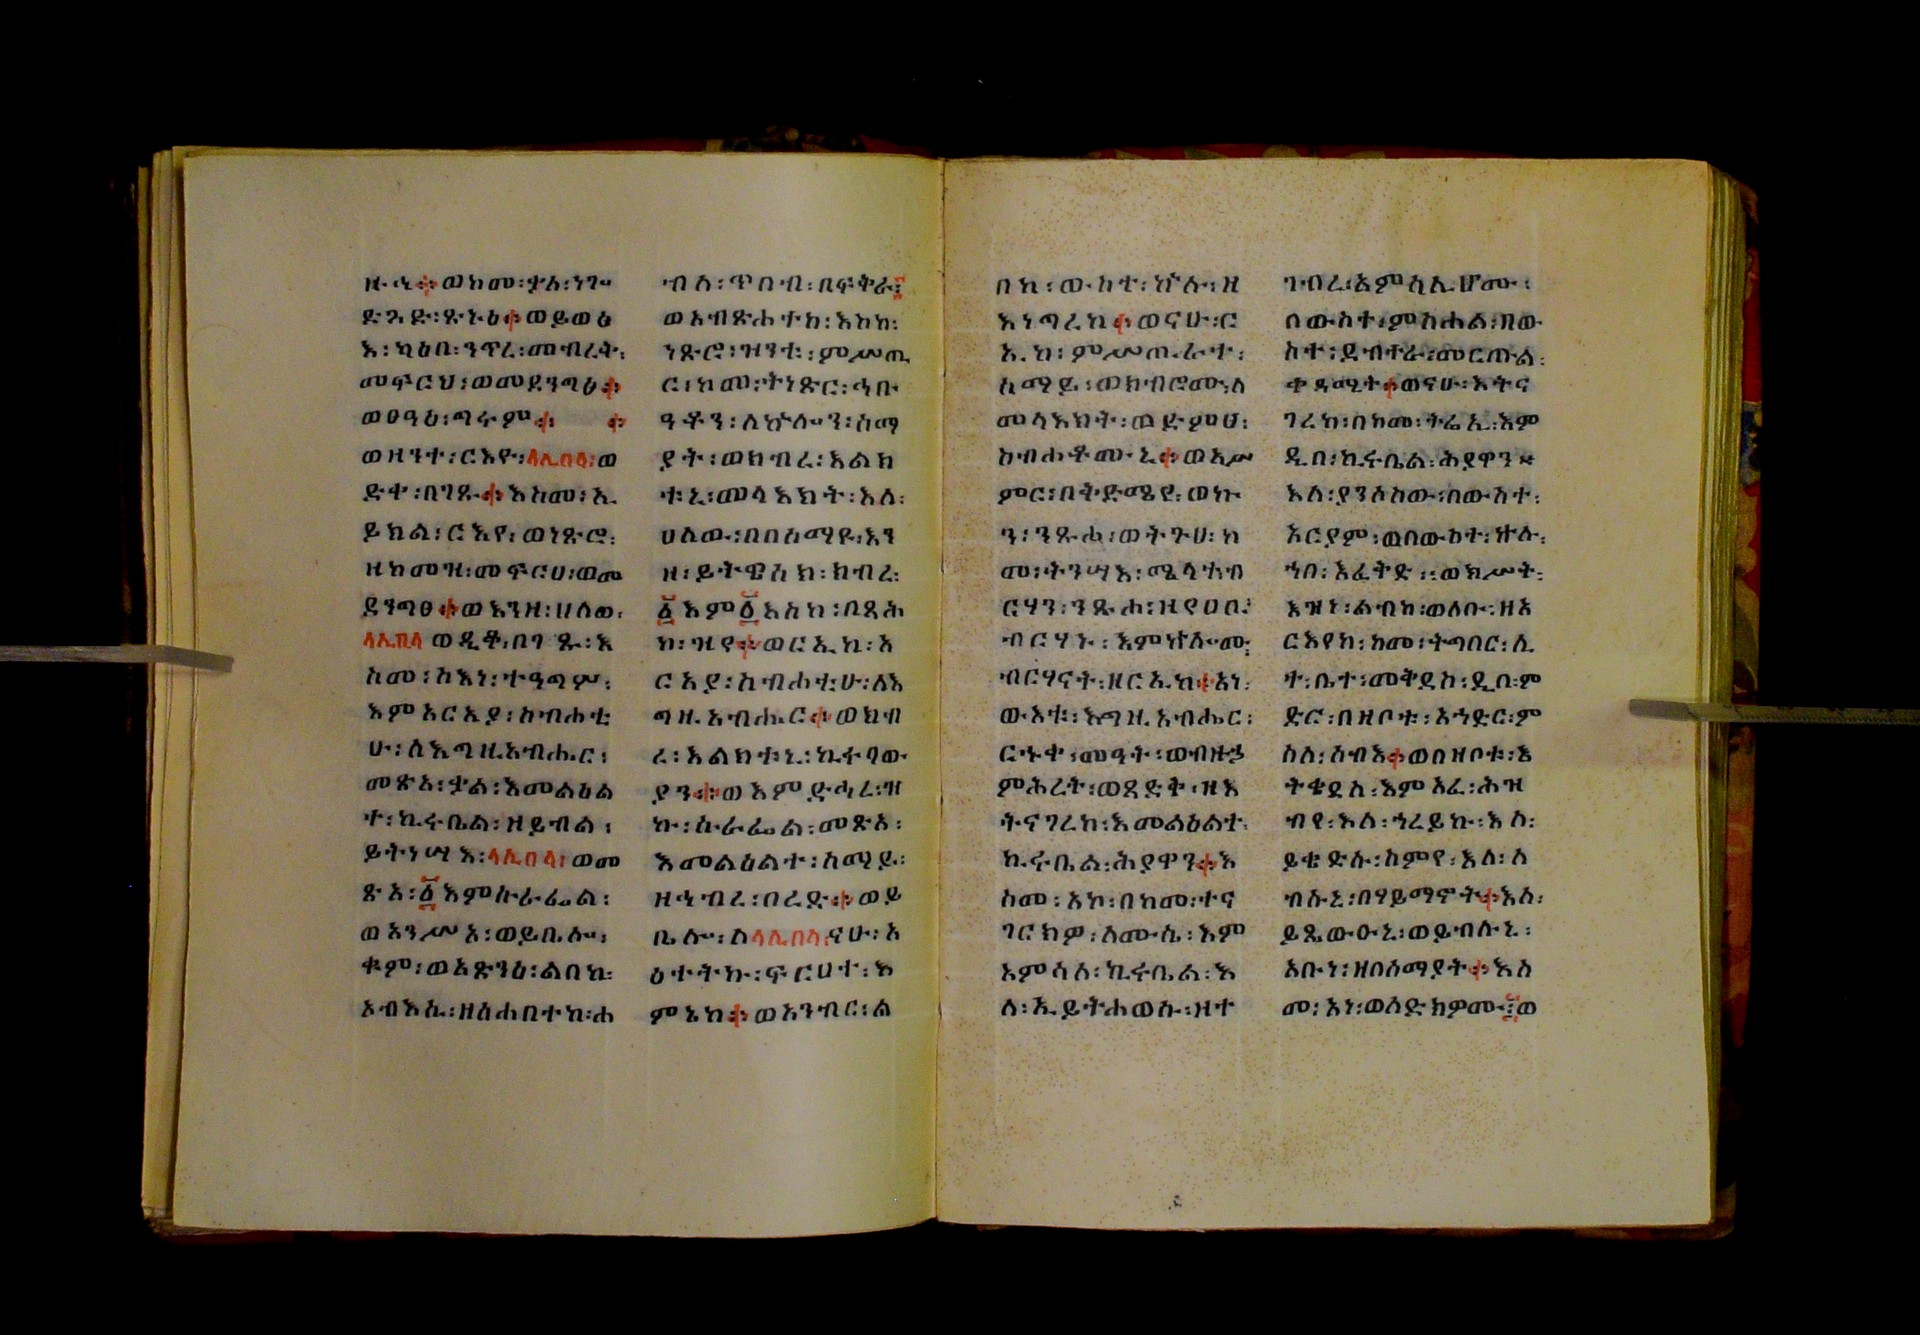 ዙኂ፨ወከመ፡ቃለ፡ነጐ
ድጓድ፡ጽኑዕ፨ወይወፅ
እ፡ካዕበ፡ንጥረ፡መብረት፡
መፍርህ፡ወመደንግፅ፨
ወፀዓዕ፡ግሩም፨ ፨
ወዘንተ፡ርእዮ፡ላሊበላ፡ወ
ድቀ፡በገጹ፨እስመ፡ኢ
ይክል፡ርእየ፡ወነጽሮ፡
ዘከመዝ፡መፍርሀ፡ወመ
ደንግፀ፨ወእንዘ፡ሀለወ፡
ላሊበላ ወዲቆ፡በገጹ፡እ
ስመ፡ስእነ፡ተዓግሦ፡
እምአርአያ፡ስብሐቲ
ሁ፡ለእግዚአብሔር፡
መጽአ፡ቃል፡እመልዕል
ተ፡ኪሩቤል፡ዘይብል፡
ይትነሣእ፡ላሊበላ፡ወመ
ጽአ፡፩እምሱራፌል፡
ወአንሥአ፡ወይቤሎ፡
ቁም፡ወአጽንዕ፡ልበከ፡
ኦብእሲ፡ዘስሐበተከ፡ሐ
ብለ፡ጥበብ፡በፍቅራ፤
ወአብጽሐተከ፡እስከ፡
ነጽሮ፡ዝንቱ፡ምሥጢ
ር፡ከመ፡ትነጽር፡ኀቡ
ዓቶን፡ለኵሎን፡ሰማ
ያት፡ወክብረ፡እልክ
ቱኒ፡መላእክት፡እለ፡
ሀለዉ፡በበሰማዩ፡እን
ዘ፡ይትዌሰክ፡ክብረ፡
፩እም፩እስከ፡በጻሕ
ከ፡ዝየ፨ወርኢከ፡አ
ርአያ፡ስብሐቲሁ፡ለእ
ግዚአብሔር፨ወክብ
ረ፡እልክቱኒ፡ኪተባው
ያን፨ወእምድኅረ፡ዝ
ኩ፡ሱራፌል፡መጽአ፡
እመልዕልተ፡ሰማይ፡
ዘኅብረ፡በረድ፨ወይ
ቤሎ፡ለላሊበላ፡ናሁ፡አ
ዕተትኩ፡ፍርሀተ፡እ
ምኔከ፨ወአንብር፡ል
በከ፡ውስተ፡ኵሉ፡ዘ
እነግረከ፨ወናሁ፡ር
ኢከ፡ምሥጢራተ፡
ሰማይ፡ወክብሮሙ፡ለ
መላእክት፡ወድምፀ፡
ስብሐቶሙኒ፨ወአሥ
ምር፡በትድሜየ፡ወነጐ
ን፡ንጹሐ፡ወትጉሀ፡ከ
መ፡ትንሣእ፡ሜላኀብ
ርሃነ፡ንጹሐ፡ዘየዐቢ፡
ብርሃኑ፡እምኵሎሙ፡
ብርሃናት፡ዘርኢከ፨አነ፡
ውእቱ፡እግዚአብሔር፡
ርኁቀ፡መዓት፡ወብዙኃ
ምሕረት፡ወጻድቅ፡ዝእ
ትናገረከ፡እመልዕልተ፡
ኪሩቤል፡ሕያዋን፨እ
ስመ፡አኮ፡በከመ፡ተና
ገርክዎ፡ለሙሴ፡እም
እምሳለ፡ኪሩቤል፡እ
ለ፡ኢይትሐወሱ፡ዘተ
ገብረ፡አምሳሊሆሙ፡
በውስተ፡ምስሐል፡በው
ስተ፡ደብተራ፡መርጡል፡
ቀዳሚት፨ወናሁ፡እትና
ገረከ፡በከመ፡ትሬኢ፡እም
ዲበ፡ኪሩቤል፡ሕያዋን፨
እለ፡ያንሶስው፡በውስተ፡
አርያም፡ወበውስተ፡ኵሉ፡
ኀበ፡እፈትድ፡፡ወክሥት፡
እዝነ፡ልብከ፡ወለቡ፡ዘአ
ርእየከ፡ከመ፡ትግበር፡ሊ
ተ፡ቤተ፡መቅደስ፡ዲበ፡ም
ድር፡በዘቦቱ፡አኀድር፡ም
ስለ፡ሰብእ፨ወበዘቦቱ፡እ
ትቄደስ፡እምአፈ፡ሕዝ
ብየ፡እለ፡ኀረይኩ፡እለ፡
ይቄድሱ፡ስምየ፡እለ፡ለ
ብሱኒ፡በሃይማኖት፨እለ፡
ይጼውዑኒ፡ወይብሉኒ፡
አቡነ፡ዘበሰማያት፨እስ
መ፡አነ፡ወለድክዎሙ፤ወ